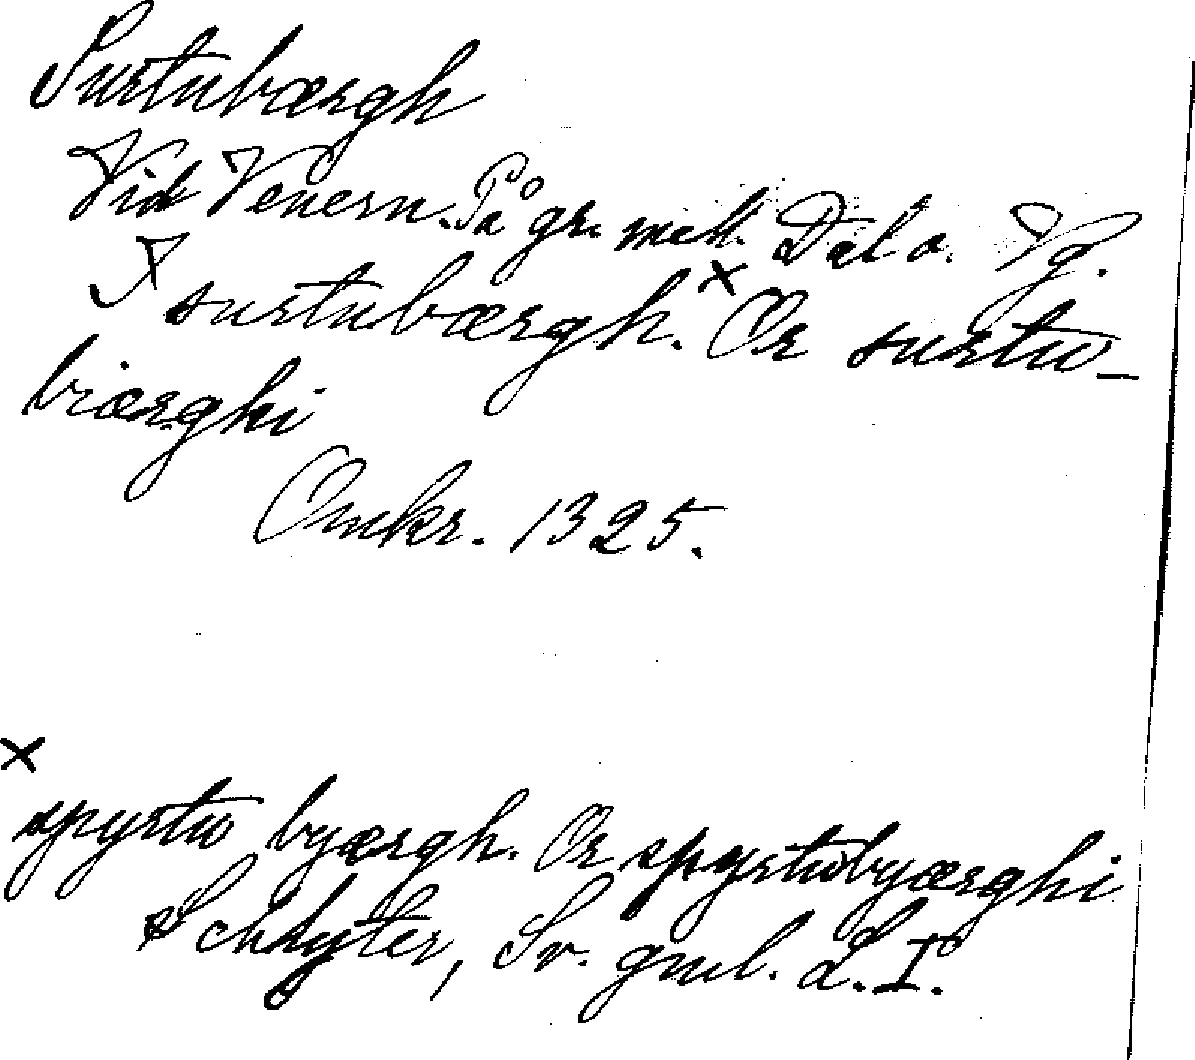 Surtubærgh
Vid Venern. På gr. mell. Dal o. Vg.
I surtubærgh.× Or surtu-
biærghi
Omkr. 1325.
×
spyrtu byærgh. Or spyrtubyærghi
Schlyter, Sv. gml. L. I.